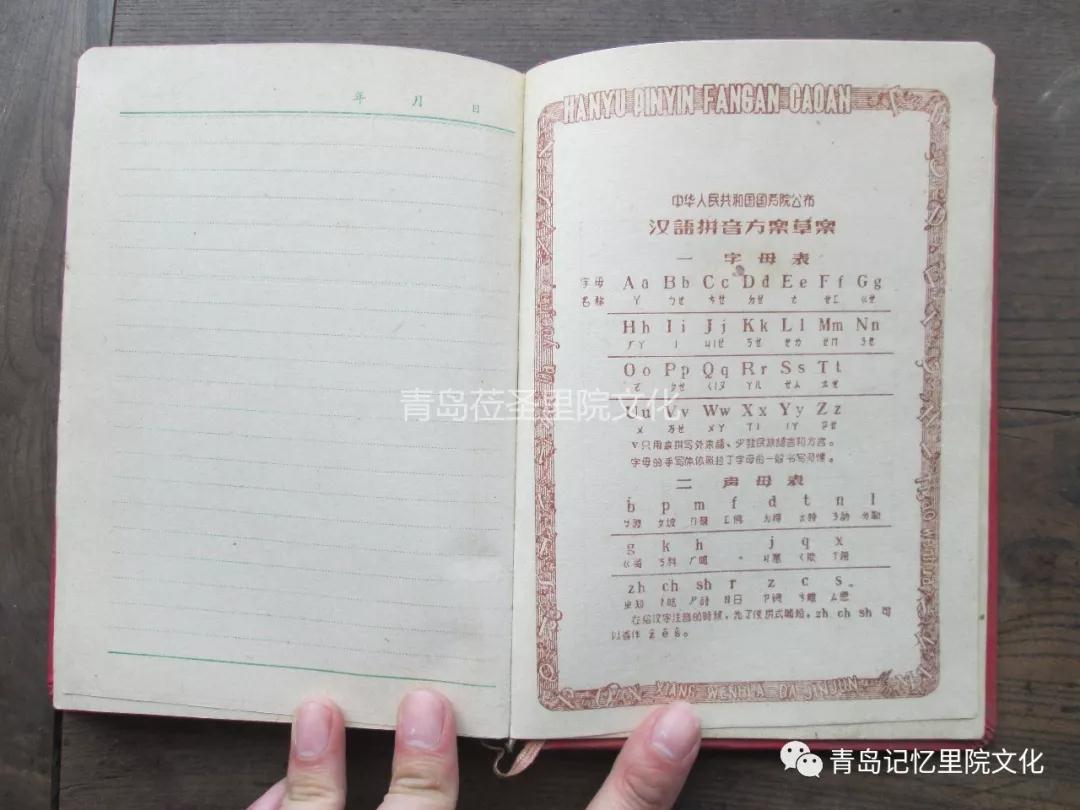 年 月 日
HANYU PINYIN FANGAN CAOAN
中华人民共和国国务院公布
汉語拼音方案草案
一 字母表
字母 Aa Bb Cc Dd Ee Ff Gg
名称 ㄚ ㄅㄝ ㄘㄝ ㄉㄝ ㄜ ㄝㄈ ㄍㄝ
Hh Ii Jj Kk Ll Mm Nn
ㄏㄚ ㄧ ㄐㄧㄝ ㄎㄝ ㄝㄌ ㄝㄇ ㄋㄝ
Oo Pp Qq Rr Ss Tt
ㄛ ㄆㄝ ㄑㄧㄡ ㄚㄦ ㄝㄙ ㄊㄝ
Uu Vv Ww Xx Yy Zz
ㄨ ㄪㄝ ㄨㄚ ㄒㄧ ㄧㄚ ㄗㄝ
v只用来拼写外来語、少数民族語言和方言。
字母的手写体依照拉丁字母的一般书写习惯。
二 声母表
b p m f d t n l
ㄅ玻 ㄆ坡 ㄇ摸 ㄈ佛 ㄉ得 ㄊ特 ㄋ訥 ㄌ勒
g k h j q x
ㄍ哥 ㄎ科 ㄏ喝 ㄐ基 ㄑ欺 ㄒ希
zh ch sh r z c s
ㄓ知 ㄔ蚩 ㄕ詩 ㄖ日 ㄗ資 ㄘ雌 ㄙ思
在給汉字注音的时候，为了使拼式簡短，zh ch sh 可
以省作 ẑ ĉ ŝ。
XIANG WENHUA DA JINJUN
青岛莅圣里院文化
青岛记忆里院文化